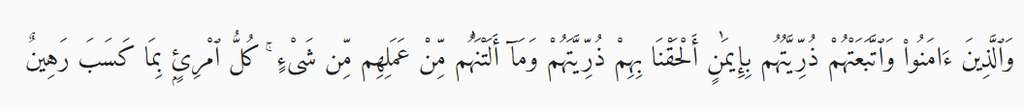 وَٱلَّذِينَ ءَامَنُوا۟ وَٱتَّبَعَتْهُمْ ذُرِّيَّتُهُم بِإِيمَٰنٍ أَلْحَقْنَا بِهِمْ ذُرِّيَّتَهُمْ وَمَآ أَلَتْنَٰهُم مِّنْ عَمَلِهِم مِّن شَىْءٍ ۚ كُلُّ ٱمْرِئٍۭ بِمَا كَسَبَ رَهِينٌ